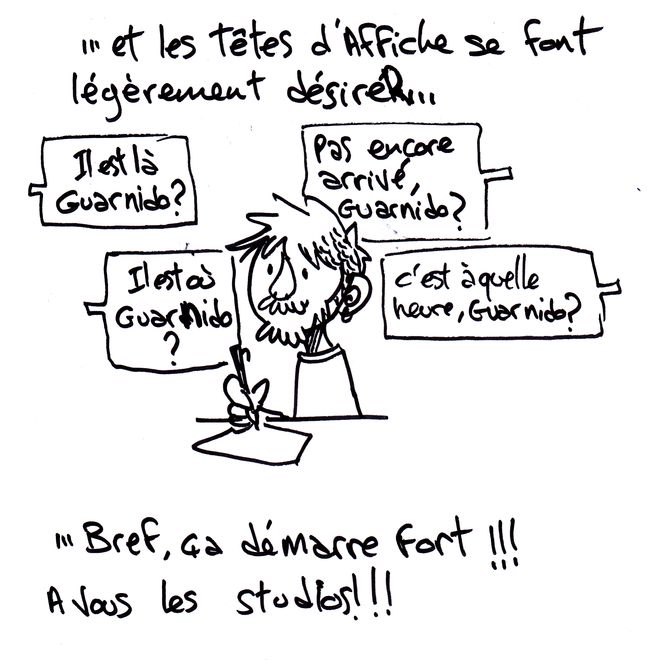 ... et les têtes d'Affiche se font
légèrement désiréR...
Il est là
Guarnido?
Pas encore
arrivé,
Guarnido?
Il est où
Guarnido
?
c'est à quelle
heure, Guarnido?
... Bref, ça démarre fort !!!
A vous les studios!!!